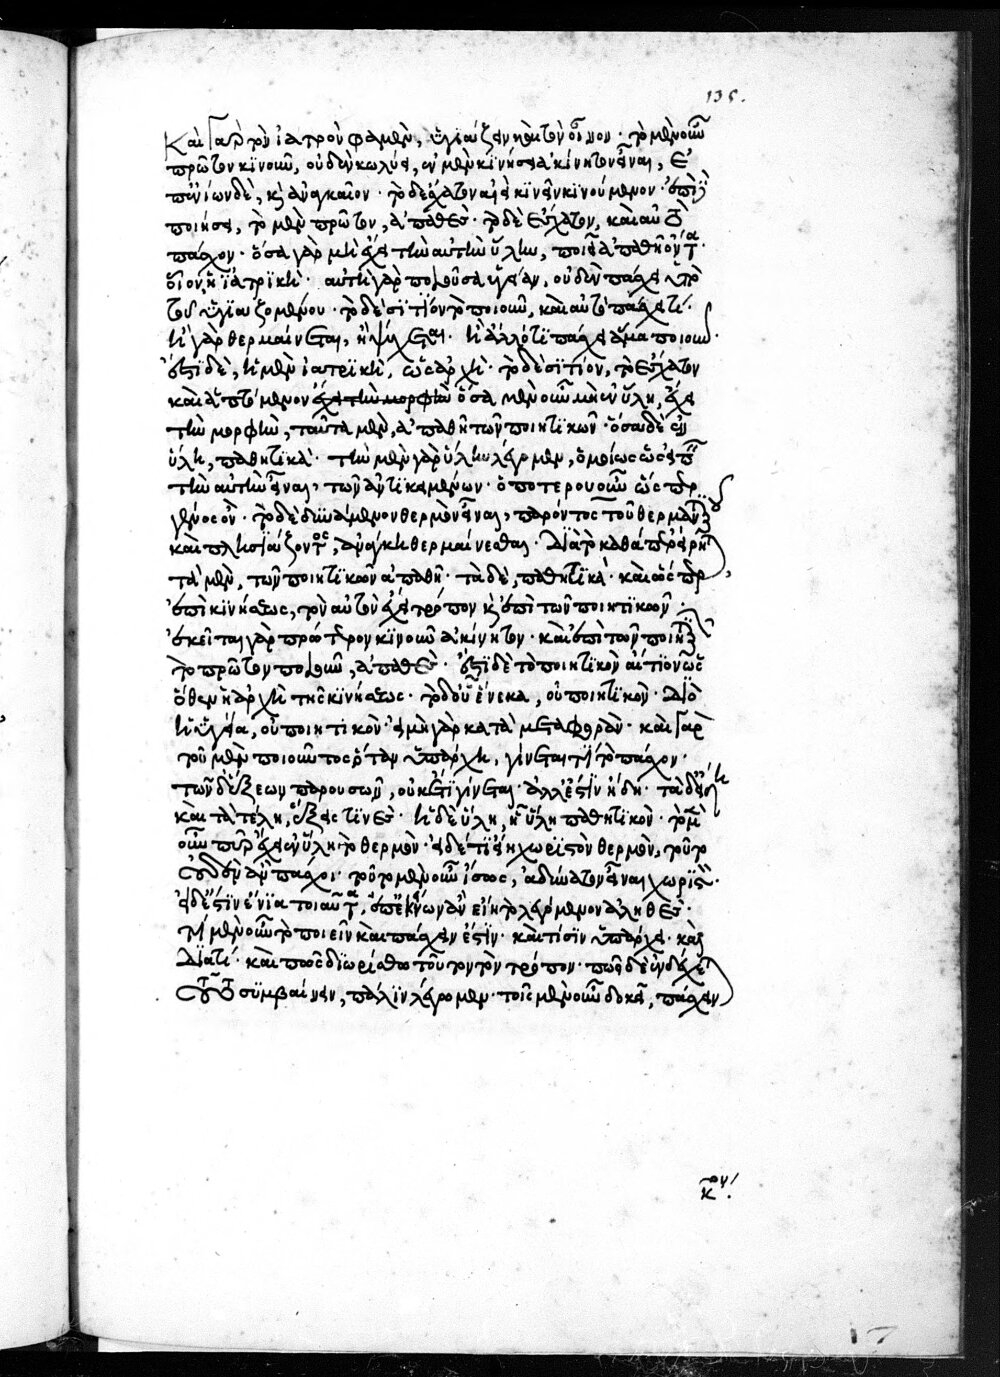 135.
Καὶ γὰρ τὸν ἰατρὸν φαμὲν, ὑγιάζειν καὶ τὸν οἶνον· τὸ μὲν οὖν
πρῶτον κινοῦν, οὐδὲν κωλύει, ἐν μὲν κινήσει ἀκίνητον εἶναι, ἐ
π' ἐνίων δὲ, καὶ ἀναγκαῖον· τὸ δ' ἔσχατον ἀεὶ κινεῖν κινούμενον· ἐπὶ δὲ
ποιήσεως, τὸ μὲν πρῶτον, ἀπαθές· τὸ δὲ ἔσχατον, καὶ αὐτὸ
πάσχον· ὅσα γὰρ μὴ ἔχει τὴν αὐτὴν ὕλην, ποιεῖ ἀπαθῆ ὄντα·
οἷον, ἡ ἰατρική· αὐτὴ γὰρ ποιοῦσα ὑγείαν, οὐδὲν πάσχει ὑπὸ
τοῦ ὑγιαζομένου· τὸ δὲ σιτίον τὸ ποιοῦν, καὶ αὐτὸ πάσχει τί·
ἢ γὰρ θερμαίνεται, ἢ ψύχεται· ἢ ἄλλό τι πάσχει ἅμα ποιοῦν·
ἔστι δὲ, ἡ μὲν ἰατρικὴ, ὡς ἀρχή· τὸ δὲ σιτίον, τὸ ἔσχατον
καὶ ἁπτόμενον ἔχει τὴν μορφὴν ὅσα μὲν οὖν μὴ ἐν ὕλη, ἔχει
τὴν μορφὴν, ταῦτα μὲν, ἀπαθῆ τῶν ποιητικῶν· ὅσα δὲ ἐν
ὕλη, παθητικά· τὴν μὲν γὰρ ὕλην λέγομεν, ὁμοίως ὡς εἰπεῖν
τὴν αὐτὴν εἶναι, τῶν ἀντικειμένων· ὁποτερουοῦν ὥσπερ
γένος ὄν· τὸ δὲ δυνάμενον θερμὸν εἶναι, παρόντος τοῦ θερμαντικοῦ
καὶ πλησιάζοντος, ἀνάγκη θερμαίνεσθαι· Διὸ καθάπερ εἴρηται
τὰ μὲν, τῶν ποιητικῶν ἀπαθῆ· τὰ δὲ, παθητικά· καὶ ὥσπερ
ἐπὶ κινήσεως, τὸν αὐτὸν ἔχει τρόπον καὶ ἐπὶ τῶν ποιητικῶν·
ἐκεῖ τε γὰρ πρώτερον κινοῦν ἀκίνητον· καὶ ἐπὶ τῶν ποιητικῶν
τὸ πρῶτον ποιοῦν, ἀπαθές· ἔστι δὲ τὸ ποιητικὸν αἴτιον ὡς
ὅθεν ἡ ἀρχὴ τῆς κινήσεως· τὸ δ' οὗ ἕνεκα, οὐ ποιητικόν· Διὸ
ἡ ὑγεία, οὐ ποιητικόν· εἰ μὴ γὰρ κατὰ μεταφοράν· καὶ γὰρ
τοῦ μὲν ποιοῦντος ὅταν ὑπάρχη, γίνεταί τι τὸ πάσχον·
τῶν δὲ ἕξεων παρουσῶν, οὐκέτι γίνεται· ἀλλ' ἔστιν ἤδη· τὰ δὲ εἴδη
καὶ τὰ τέλη, ἕξεις τινές· ἡ δὲ ὕλη, ἧ ὕλη παθητικόν· τὸ μὲν
οὖν πῦρ ἔχει ἐν ὕλη τὸ θερμόν· εἰ δέ τι εἴη χωριστὸν θερμὸν, τοῦτο
οὐδὲν ἂν πάσχοι· τοῦτο μὲν οὖν ἴσως, ἀδύνατον εἶναι χωριστόν·
εἰ δέ ἐστιν ἔνια τοιαῦτα, ἐπ' ἐκείνων ἂν εἴη τὸ λεγόμενον ἀληθές·
τί μὲν οὖν τὸ ποιεῖν καὶ πάσχειν ἐστὶν· καὶ τίσιν ὑπάρχει· καὶ
Διατί· καὶ πῶς διωρίσθω τοῦτον τὸν τρόπον· πῶς δὲ ἐνδέχεται
τοῦτο συμβαίνειν, πάλιν λέγομεν· τοῖς μὲν οὖν δοκεῖ, πάσχειν